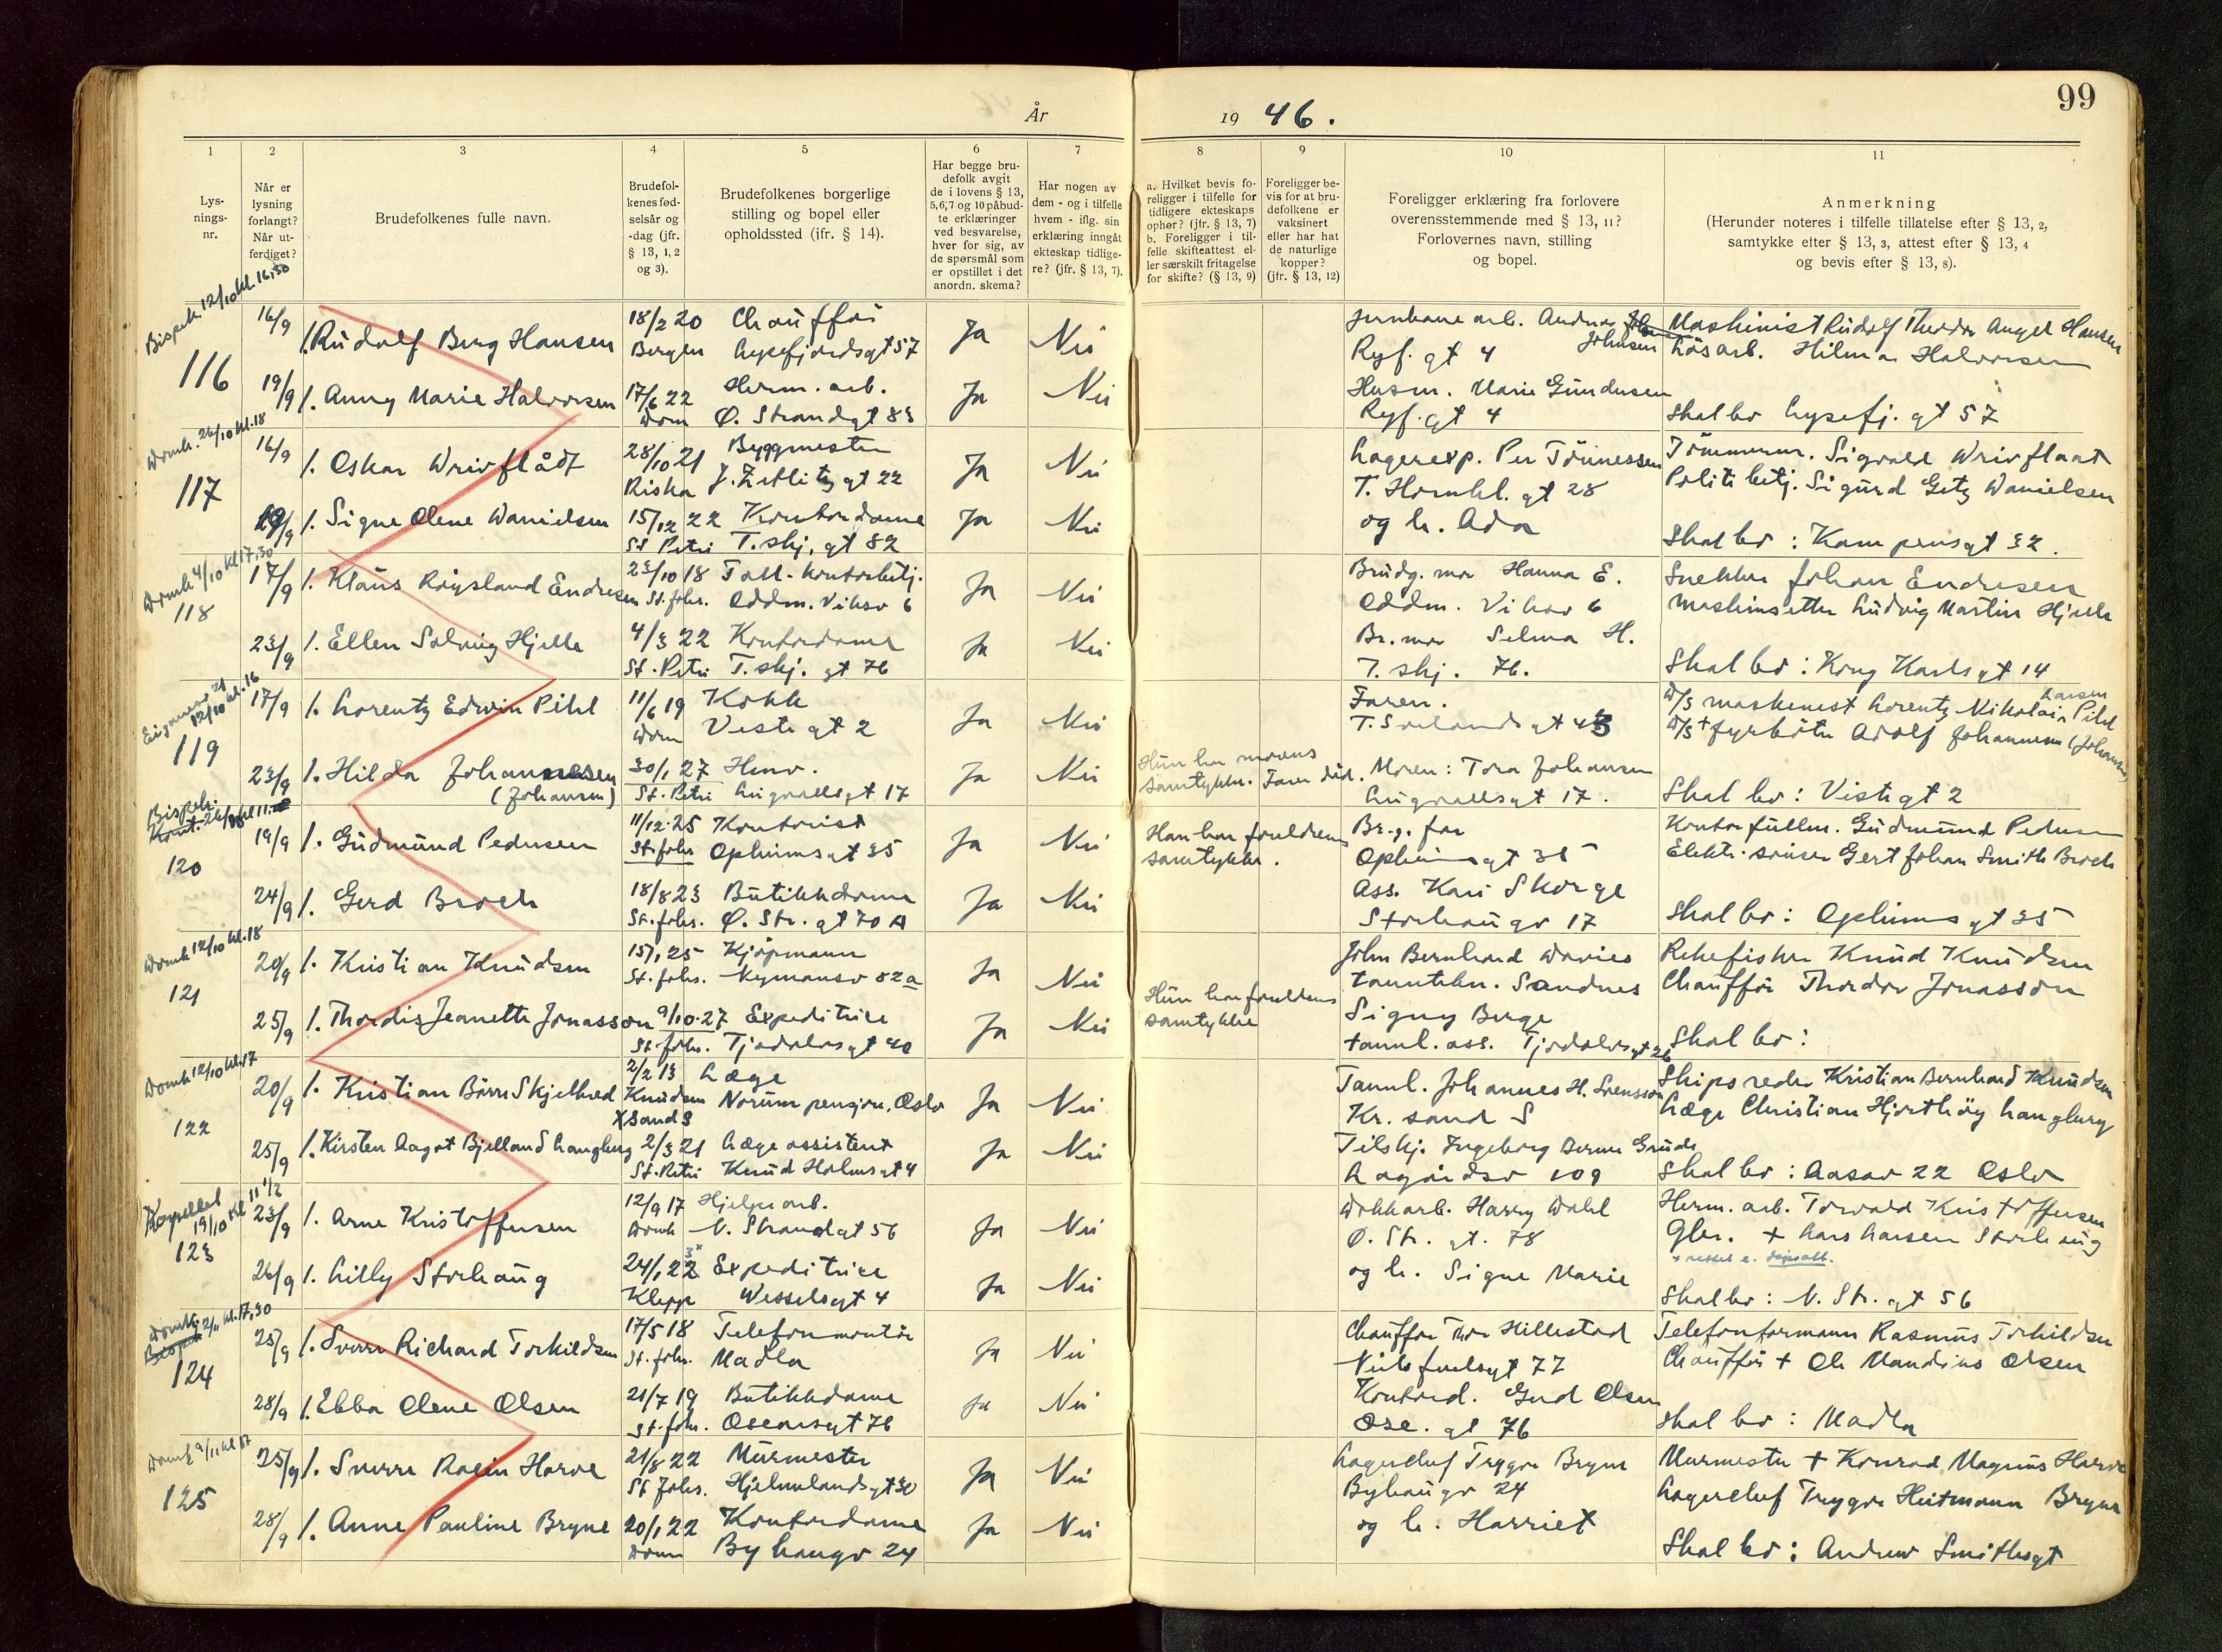 99
År 1946.
1
2
3
4
5
6
7
8
9
10
11
Lysningsnr.
Når er lysning forlangt? Når utferdiget?
Brudefolkenes fulle navn.
Brudefolkenes fødselsår og -dag (jfr. § 13, 1, 2 og 3).
Brudefolkenes borgerlige stilling og bopel eller opholdssted (jfr. § 14).
Har begge brudefolk avgit de i lovens § 13, 5, 6, 7 og 10 påbudte erklæringer ved besvarelse, hver for sig, av de spørsmål som er opstillet i det anordn. skema?
Har nogen av dem - og i tilfelle hvem - iflg. sin erklæring inngåt ekteskap tidligere? (jfr. § 13, 7).
a. Hvilket bevis foreligger i tilfelle for tidligere ekteskaps ophør? (jfr. § 13, 7) b. Foreligger i tilfelle skifteattest eller særskilt fritagelse for skifte? (§ 13, 9)
Foreligger bevis for at brudefolkene er vaksinert eller har hat de naturlige kopper? (jfr. § 13, 12)
Foreligger erklæring fra forlovere overensstemmende med § 13, 11? Forlovernes navn, stilling og bopel.
Anmerkning (Herunder noteres i tilfelle tillatelse efter § 13, 2, samtykke efter § 13, 3, attest efter § 13, 4 og bevis efter § 13, 8).
Bispek. 12/10 kl. 16.30
116
16/9 1. Rudolf Berg Hansen 18/2 20 Chauffør Ja Nei
Bergen Lysefjordsgt 57
Ryf. gt 4 Johnsen
Maskinist Rudolf Theodor Angel Hansen
Løsarb. Hilmar Halvorsen
19/9 1. Anny Marie Halvorsen 17/6 22 Herm. arb. Ja Nei
Dom Ø. Strandgt 83
Husm. Marie Gundersen
Ryf. gt 4
Skal bo Lysefj. gt 57
Domk. 26/10 kl. 18
117
16/9 1. Oskar Dreivflådt 28/10 21 Byggmester Ja Nei
Riska J. Zetlitz gt 22
Lagerexp. Per Tönnessen
T. Hornkl. gt 28
Tömmerm. Sigvald Dreivflaat
Politibetj. Sigurd Getz Danielsen
19/9 1. Signe Olene Danielsen 15/12 22 Kontordame Ja Nei
St Petri T. skj. gt 82
og h. Ada
Skal bo: Kampensgt 32.
Domk 4/10 kl 17.30
118
17/9 1. Klaus Röysland Endresen 23/10 18 Toll-kontorbetj. Ja Nei
St. Johs. Oddm. Viksv 6
Brudg. mor Hanna E.
Snekker Johan Endresen
Maskinsetter Ludvig Martin Hjelle
23/9 1. Ellen Solveig Hjelle 4/3 22 Kontordame Ja Nei
St. Petri T. skj. gt 76
Br. mor Selma H.
T. skj. 76.
Skal bo: Kong Karlsgt 14
12/10 kl. 16
119
17/9 1. Lorentz Edvin Pihl 11/6 19 Kokk Ja Nei
Dom Vestegt 2
Faren.
D/S maskinist Lorentz Nikolai Larsen Pihl
D/S + fyrböter Adolf Johannesen (Johansen)
23/9 1. Hilda Johannesen (Johansen) 30/1 27 Hinv. Ja Nei
St. Petri Lugvallsgt 17
Hun har morens samtykke. Faren död.
Moren: Tora Johansen
Lugvallsgt 17.
Skal bo: Vestegt 2
Bispek.
120
19/9 1. Gudmund Pedersen 11/12 25 Kontorist Ja Nei
St. Johs Opheimsgt 35
Han har foreldrenes samtykke.
Br.g. far
Opheimsgt 35
Kontorfullm. Gudmund Pedersen
Gert Johan Smith Broch
24/9 1. Gerd Broch 18/8 23 Butikkdame Ja Nei
St. Johs. Ø. Str. gt 70 A
Ass. Kari Skorge
Storhaugv 17
Skal bo: Opheimsgt 35
Domk 12/10 kl. 18
121
20/9 1. Kristian Knudsen 15/1 25 Kjöpmann Ja Nei
St. Johs. Nymansv 82a
John Bernhard Davies
tanntekn. Sandnes
Rekefisker Knud Knudsen
Chauffør Thordor Jonasson
25/9 1. Thordis Jeanette Jonasson 9/10 27 Expeditrise Ja Nei
St. Johs. Tjodolvsgt 40
Hun har foreldrenes samtykke
Signy Berge
tannl. ass. Tjodolvsgt 26
Skal bo:
Domk 12/10 kl. 17
122
20/9 1. Kristian Börre Skjelbred Knudsen 2/2 13 Læge Ja Nei
X Sand S Norum pensjon, Oslo
Tannl. Johannes H. Sörensson
Kr. sand S
Skipsreder Kristian Bernhard Knudsen
Læge Christian Hjorthöy Langberg
25/9 1. Kirsten Aagot Bjelland Langberg 2/3 21 Lægeassistent Ja Nei
St. Petri Knud Holmsgt 4
Lagårdsv 109
Skal bo: Aasav 22 Oslo
Kapellet 19/10 kl 11 1/2
123
23/9 1. Arne Kristoffersen 12/9 17 Hjelpearb. Ja Nei
Domk N. Strandgt 56
Dokkarb. Harry Dahl
Ø. Str. gt. 78
Herm. arb. Torvald Kristoffersen
Gbr. + Lars Larsen Storhaug
26/9 1. Lilly Storhaug 24/1 22 Expeditrise Ja Nei
Klepp Wesselsgt 4
og h. Signe Marie
Skal bo: N. Str. gt 56
Domk. 2/11 kl. 17,30
124
25/9 1. Sverre Richard Torkildsen 17/5 18 Telefonmontör Ja Nei
St. Johs. Madla
Chauffør Thor Hillestad
Niels Juelsgt 77
Telefonformann Rasmus Torkildsen
Chauffør + Ole Mandius Olsen
28/9 1. Ebba Olene Olsen 21/7 19 Butikkdame Ja Nei
St. Johs. Oscarsgt 76
Kontord. Gerd Olsen
Osc. gt 76
Skal bo: Madla
Domk 9/11 kl 17
125
25/9 1. Sverre Rasin Harve 21/8 22 Murmester Ja Nei
St Johs. Hjelmelandsgt 30
Lagerchef Trygve Bryne
Byhaugv 24
Murmester + Konrad Magnus Harve
Lagerchef Trygve Heitmann Bryne
28/9 1. Anne Pauline Bryne 20/1 22 Kontordame Ja Nei
Dom Byhaugv 24
og h. Harriet
Skal bo: Andrew Smithsgt